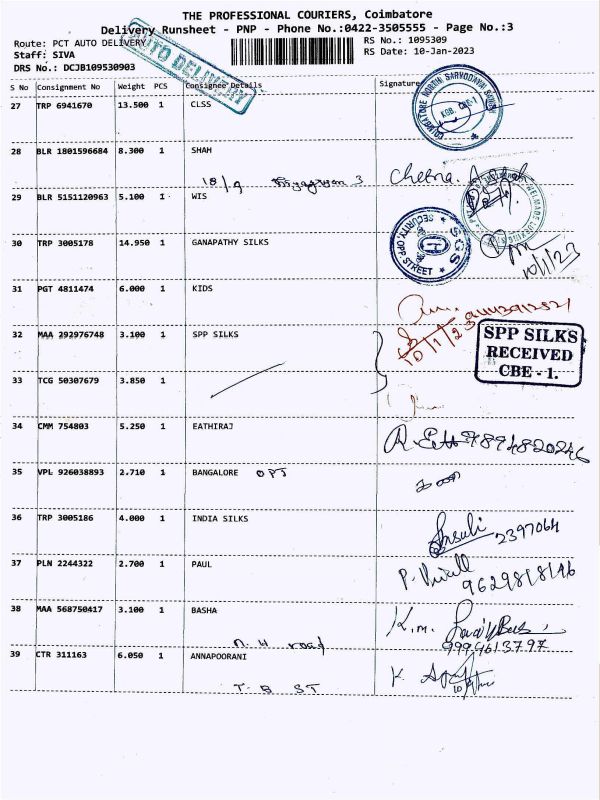 THE PROFESSIONAL COURIERS, Coimbatore
Delivery Runsheet - PNP - Phone No.:0422-3505555 - Page No.:3
Route: PCT AUTO DELIVERY RS No.: 1095309
Staff: SIVA RS Date: 10-Jan-2023
DRS No.: DCJB109530903
AUTO DELIVERY
S No Consignment No Weight PCS Consignee Details Signature
27 TRP 6941670 13.500 1 CLSS
COIMBATORE NORTH SARVODAYA SANGH
KGB. CBE-1
28 BLR 1801596684 8.300 1 SHAH
Chetna. Shah
29 BLR 5151120963 5.100 1 WIS
30 TRP 3005178 14.950 1 GANAPATHY SILKS
SGS
SECURITY, OPP. STREET
10/1/23
31 PGT 4811474 6.000 1 KIDS
32 MAA 292976748 3.100 1 SPP SILKS
10/1/23
SPP SILKS
RECEIVED
CBE - 1.
33 TCG 50307679 3.850 1
34 CMM 754803 5.250 1 EATHIRAJ
9894820246
35 VPL 926038893 2.710 1 BANGALORE OPT
36 TRP 3005186 4.000 1 INDIA SILKS
2397064
37 PLN 2244322 2.700 1 PAUL
9629818146
38 MAA 568750417 3.100 1 BASHA
K.m.
N. H road 9994613797
39 CTR 311163 6.050 1 ANNAPOORANI
K
T. B ST